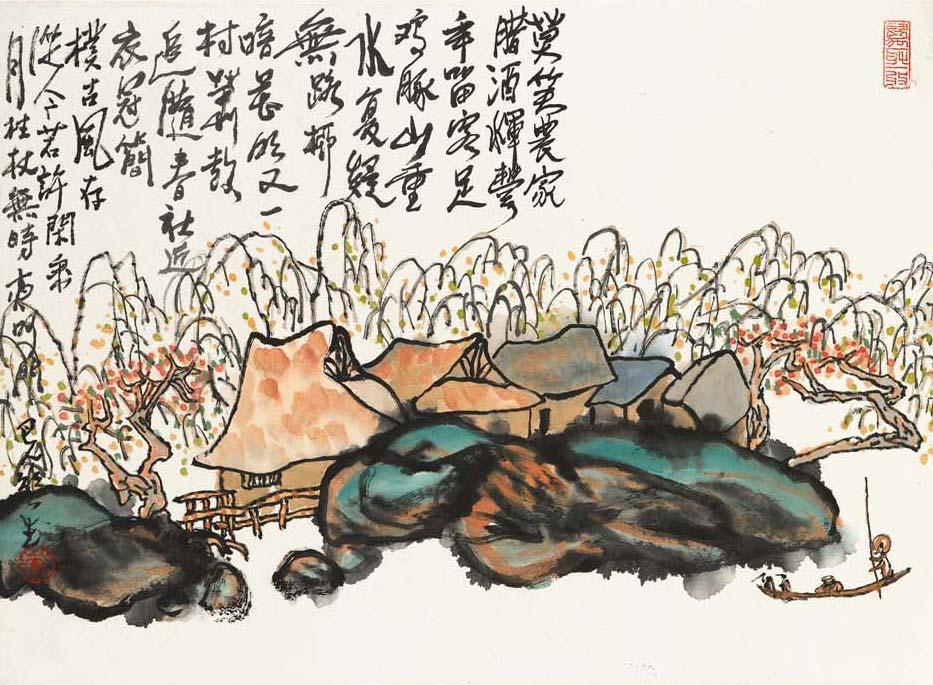 莫笑農家
臘酒渾豐
年留客足
鷄豚山重
水复疑
無路柳
暗花明又一
村簫鼓
追隨春社近
衣冠簡
樸古風存
從今若許閑乘
月拄杖無時夜叩門